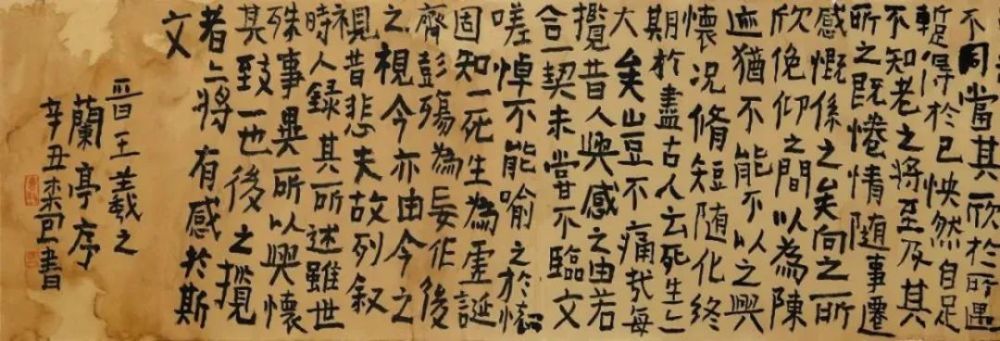 不同當其欣於所遇
暫得於己怏然自足
不知老之將至及其
所之既惓情随事遷
感慨係之矣向之所
欣俛仰之間以為陳
迹猶不能不以之興
懷况脩短随化終
期於盡古人云死生亦
大矣豈不痛哉每
攬昔人興感之由若
合一契未嘗不臨文
嗟悼不能喻之於懷
固知一死生為虛誕
齊彭殤為妄作後
之視今亦由今之
視昔悲夫故列叙
時人録其所述雖世
殊事異所以興懷
其致一也後之攬
者亦將有感於斯
文
晉王羲之
蘭亭序
辛丑書